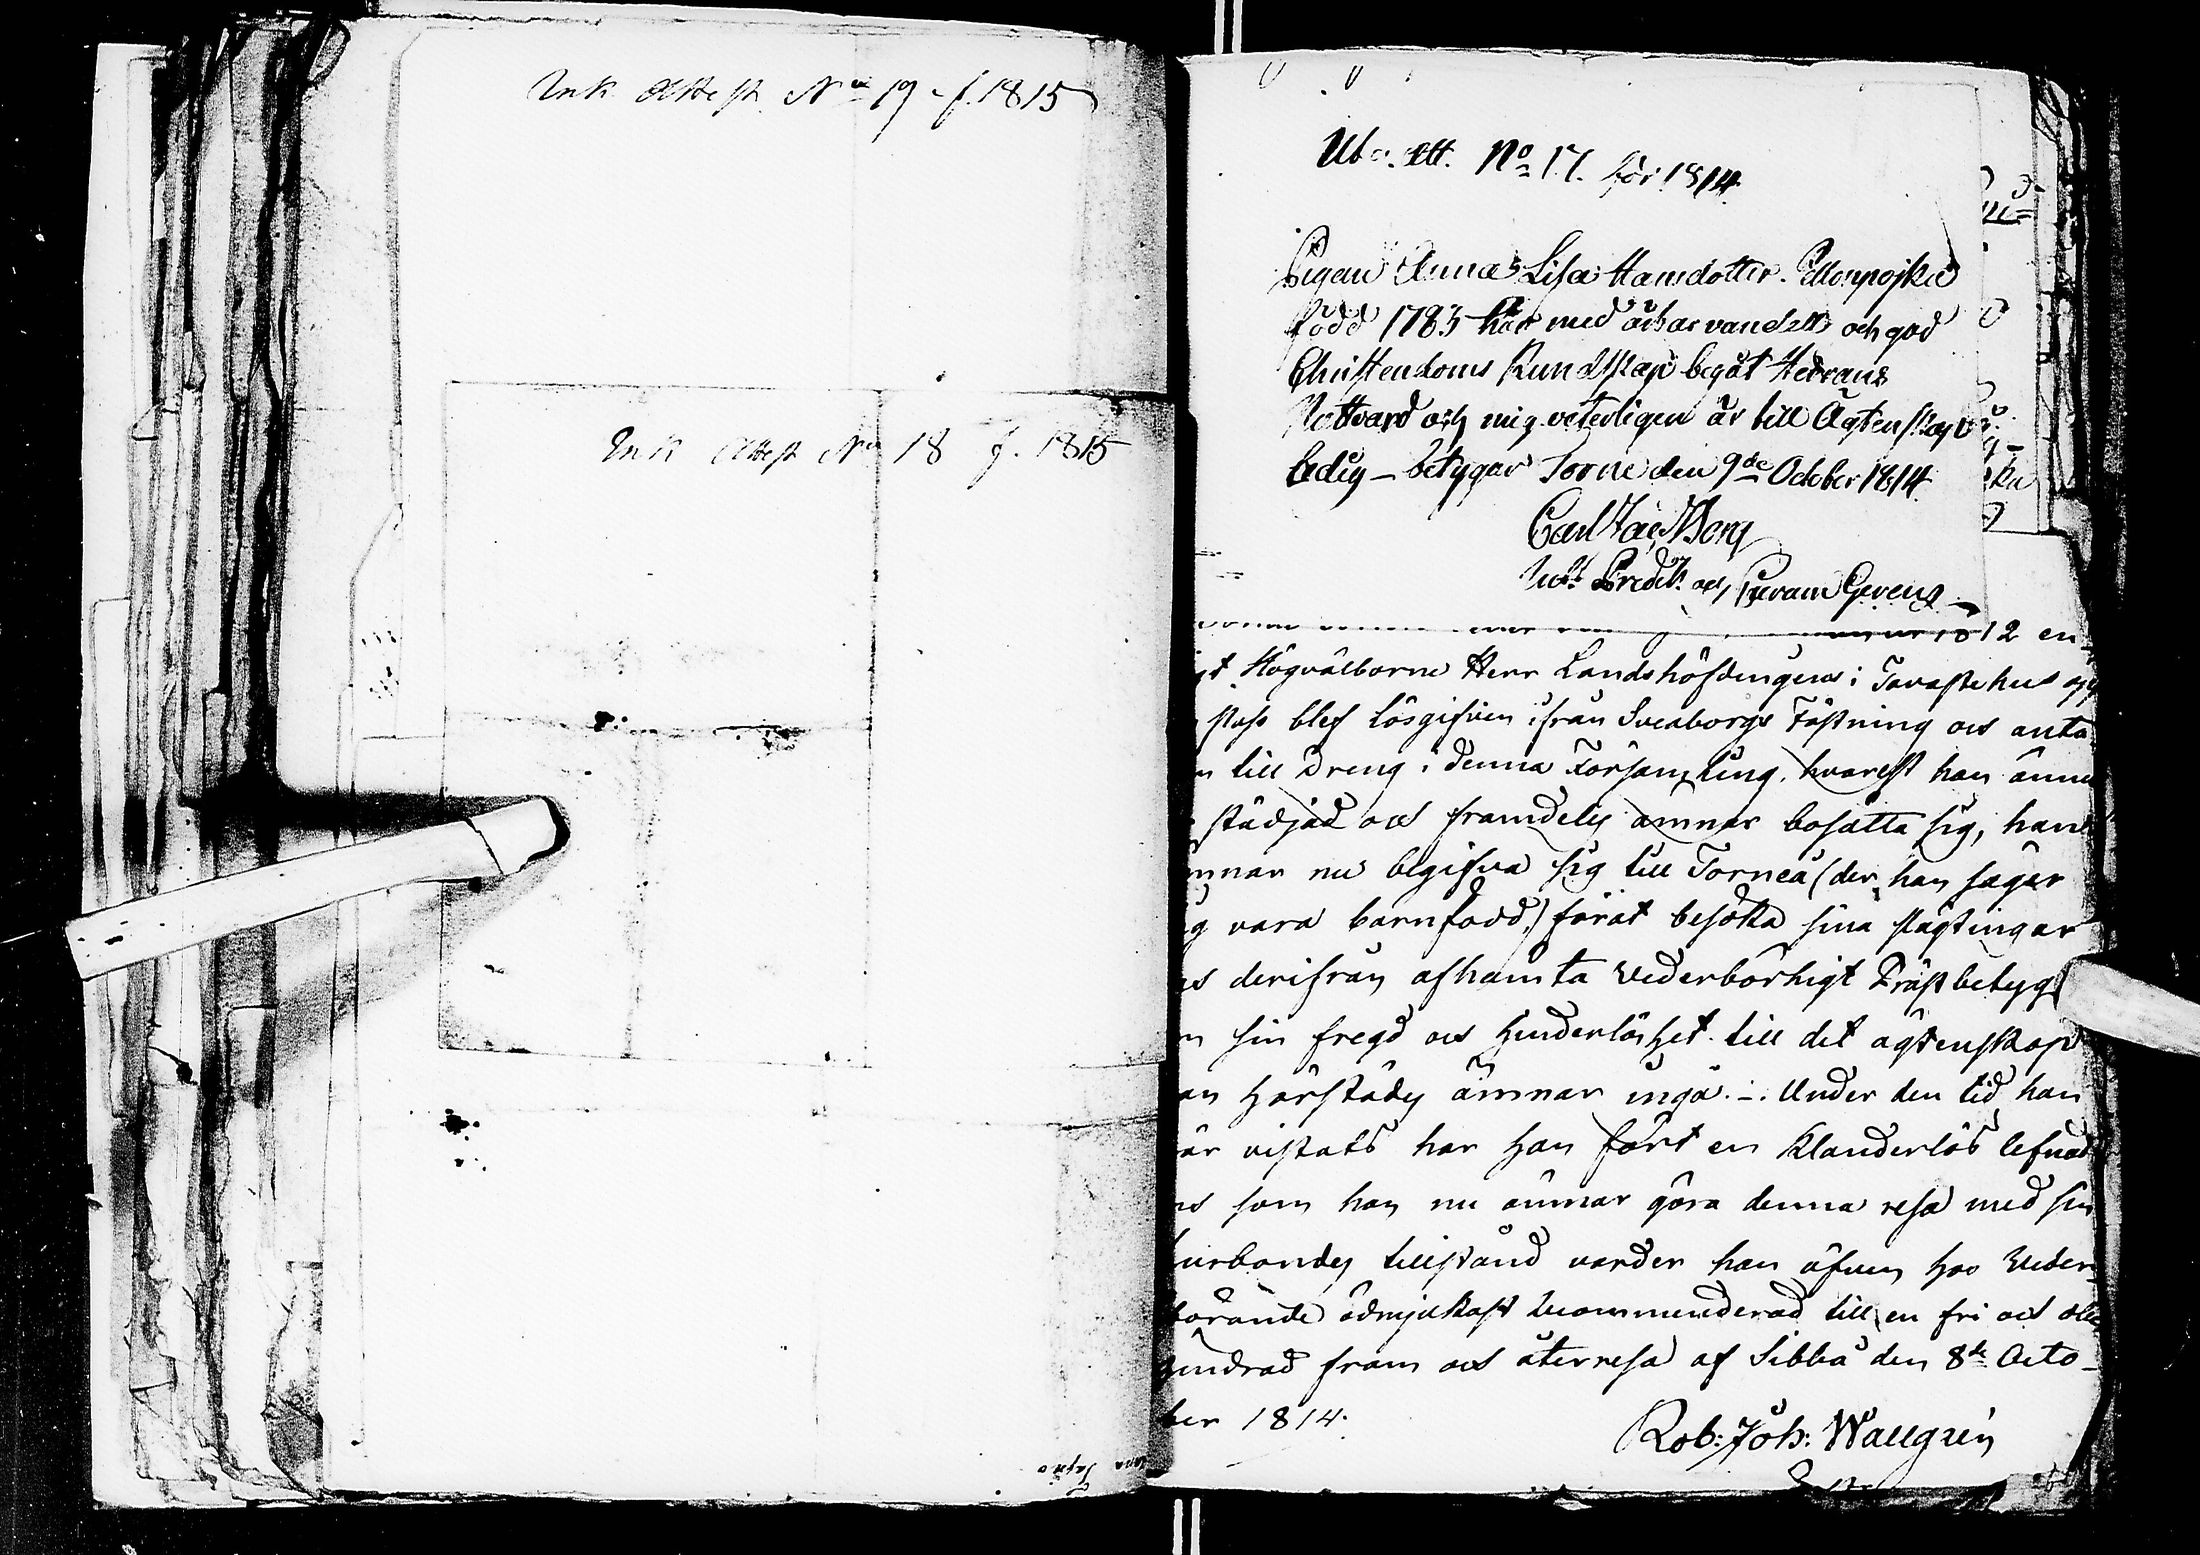 Ink Attest No 19 f. 1815
Ink Attest No 18 f. 1815
Utg. Att. No 17. för 1814.
Pigan Anna Lisa Hansdotter Mospojka
född 1783 har med ärbar vandell och god
Christendoms Kundskap begåt Herrans
Nattvard och mig veterligen är till Ägtenskap
ledig – betygar Torne den 9de October 1814.
Carl Jac. Borg
Predik. och
1812 en
Högvälborne Herr Landshöfdingens i Tavastehus
blef lösgifven ifrån Sveaborgs Fästning och anta
till Dreng i denna Församling, hvarest han ännu
städjad och framdeles ämnar bosätta sig, han
mnar nu begifva sig till Torneå (der han säger
g vara barnfödd,) föråt besöka sina slägtingar
derifrån afhämta Vederbörligt Prästbetyg
sin fregd och hinderlöshet till det ägtenskap
an härstädes ämnar ingå. –. Under den tid han
är vistats har han fört en Klanderlös lefnad
som han nu ämnar göra denna resa med sin
usbondes tillstånd varder han äfven hos Veder-
börande ödmjukast recommenderad till en fri och obe
hindrad fram och återresa af Sibbå den 8de Octo-
ber 1814.
Rob: Joh: Wallgrén